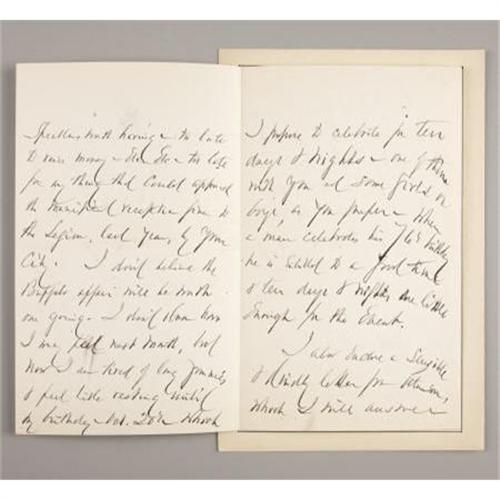 Speakers worth having - too late
to raise money - Etc Etc - too late
for anything that could approach
the municipal reception given to
the Legion, last year, by your
City. I don't believe the
Buffalo affair will be worth
one going - I don't know how
I may feel next month, but
now I am tired of long journies
& feel like resting until
my birthday - Oct. 20th which
I propose to celebrate for ten
days & nights - one of them
with you and some girls or
boys, as you prefer - When
a man celebrates his 76th birthday
he is entitled to a good time
& ten days & nights are little
enough for the event.
I also enclose a sensible
& kindly letter from
which I will answer